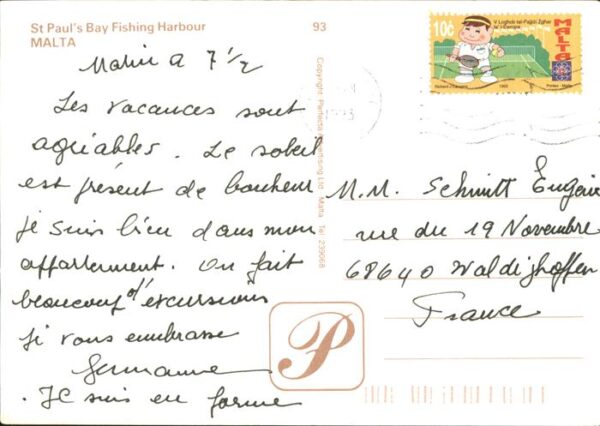 St Paul's Bay Fishing Harbour
MALTA
93
Malte a 7 1/2
Les vacances sont
agréables. Le soleil
est présent de bonheur
je suis bien dans mon
appartement. On fait
beaucoup d'excursions
Je vous embrasse
Germaine
. Je suis en forme
Copyright Perfecta Advertising Ltd Malta Tel 239068
10c
V Logħob tal-Pajjiżi Żgħar
ta' l-Ewropa
MALTA
1993
Printex - Malta
1993
M.M. Schmitt Eugène
rue du 19 Novembre
68640 Waldighoffen
France
P